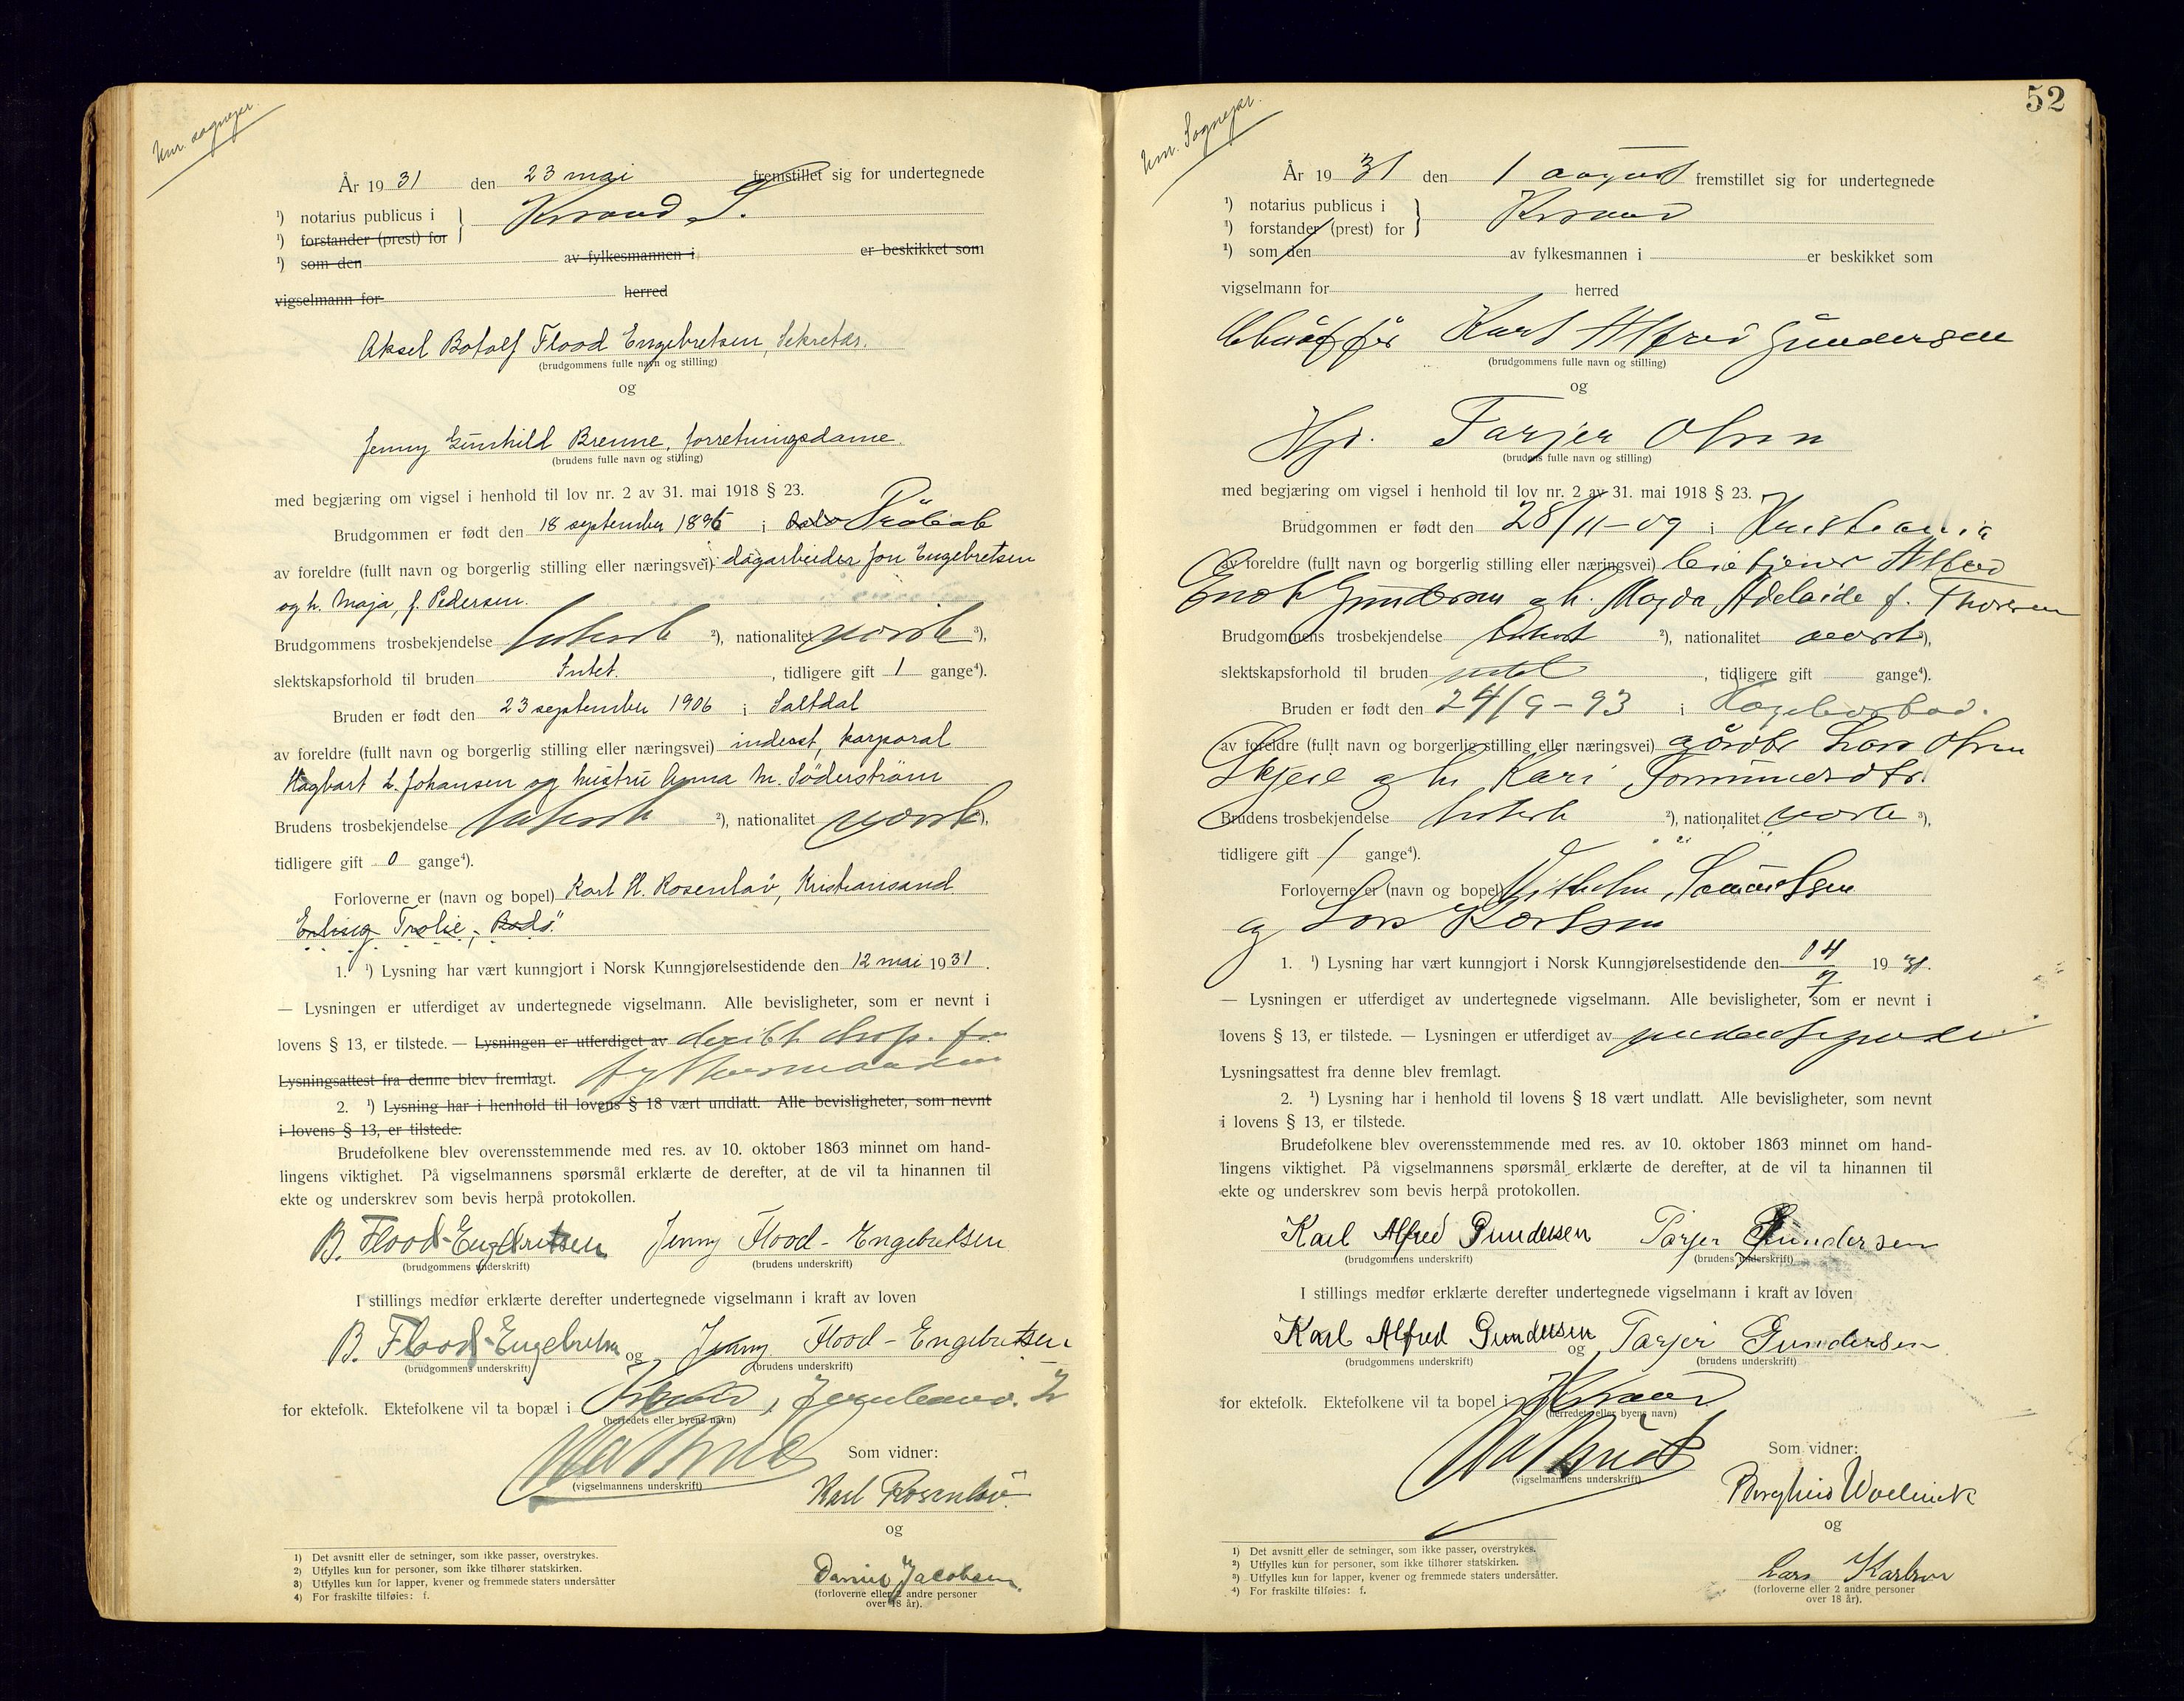 År 19 31 den 23 mai fremstillet sig for undertegnede
¹) notarius publicus i
Krsand S.
¹) forstander (prest) for
¹) som den av fylkesmannen i er beskikket som
vigselmann for herred
Aksel Botolf Flood Engebretsen, Sekretær.
(brudgommens fulle navn og stilling)
og
Jenny Gunhild Brenne, forretningsdame
(brudens fulle navn og stilling)
med begjæring om vigsel i henhold til lov nr. 2 av 31. mai 1918 § 23.
Brudgommen er født den 18 september 1896 i Oslo
av foreldre (fullt navn og borgerlig stilling eller næringsvei) dagarbeider Jon Engebretsen
og h. Maja, f. Pedersen.
Brudgommens trosbekjendelse luthersk ²), nationalitet norsk ³),
slektskapsforhold til bruden Intet. , tidligere gift 1 gange⁴).
Bruden er født den 23 september 1906 i Saltdal
av foreldre (fullt navn og borgerlig stilling eller næringsvei) inderst, korporal
Hagbart L. Johansen og hustru Anna M. Söderström
Brudens trosbekjendelse luthersk ²), nationalitet norsk ³),
tidligere gift 0 gange⁴).
Forloverne er (navn og bopel) Karl H. Rosenløv, Kristiansand
Erling Trolie, Bodö
1. ¹) Lysning har vært kunngjort i Norsk Kunngjørelsestidende den 12 mai 19 31 .
— Lysningen er utferdiget av undertegnede vigselmann. Alle bevisligheter, som er nevnt i
lovens § 13, er tilstede. — Lysningen er utferdiget av disp. fra
Lysningsattest fra denne blev fremlagt. fylkesmanden
2. ¹) Lysning har i henhold til lovens § 18 vært undlatt. Alle bevisligheter, som nevnt
i lovens § 13, er tilstede.
Brudefolkene blev overensstemmende med res. av 10. oktober 1863 minnet om hand-
lingens viktighet. På vigselmannens spørsmål erklærte de derefter, at de vil ta hinannen til
ekte og underskrev som bevis herpå protokollen.
B. Flood-Engebretsen Jenny Flood-Engebretsen
(brudgommens underskrift) (brudens underskrift)
I stillings medfør erklærte derefter undertegnede vigselmann i kraft av loven
B. Flood-Engebretsen og Jenny Flood-Engebretsen
(brudgommens underskrift) (brudens underskrift)
for ektefolk. Ektefolkene vil ta bopæl i Krsand
(herredets eller byens navn)
Som vidner:
(vigselmannens underskrift)
Karl Rosenløv
og
Daniel Jacobsen
(forloverne eller 2 andre personer
over 18 år).
1) Det avsnitt eller de setninger, som ikke passer, overstrykes.
2) Utfylles kun for personer, som ikke tilhører statskirken.
3) Utfylles kun for lapper, kvener og fremmede staters undersåtter
4) For fraskilte tilføies: f.
52
År 19 31 den 1 august fremstillet sig for undertegnede
¹) notarius publicus i
Krsand
¹) forstander (prest) for
¹) som den av fylkesmannen i er beskikket som
vigselmann for herred
Chauffør Karl Alfred Gundersen
(brudgommens fulle navn og stilling)
og
Tarjer Olsen
(brudens fulle navn og stilling)
med begjæring om vigsel i henhold til lov nr. 2 av 31. mai 1918 § 23.
Brudgommen er født den 28/11-09 i Kristiania
av foreldre (fullt navn og borgerlig stilling eller næringsvei) Alfred
Gundersen og h. Magda Adelaide f. Thoresen
Brudgommens trosbekjendelse luthersk ²), nationalitet norsk ³),
slektskapsforhold til bruden intet , tidligere gift gange⁴).
Bruden er født den 24/9-93 i Hægebostad.
av foreldre (fullt navn og borgerlig stilling eller næringsvei) gårdbr Lars Olsen
Skjeie og h. Kari Tommundsdtr.
Brudens trosbekjendelse luthersk ²), nationalitet norsk ³),
tidligere gift 1 gange⁴).
Forloverne er (navn og bopel) Vilhelm Samuelsen
og Lars Karlsen
1. ¹) Lysning har vært kunngjort i Norsk Kunngjørelsestidende den 14/7 19 31.
— Lysningen er utferdiget av undertegnede vigselmann. Alle bevisligheter, som er nevnt i
lovens § 13, er tilstede. — Lysningen er utferdiget av undertegnede
Lysningsattest fra denne blev fremlagt.
2. ¹) Lysning har i henhold til lovens § 18 vært undlatt. Alle bevisligheter, som nevnt
i lovens § 13, er tilstede.
Brudefolkene blev overensstemmende med res. av 10. oktober 1863 minnet om hand-
lingens viktighet. På vigselmannens spørsmål erklærte de derefter, at de vil ta hinannen til
ekte og underskrev som bevis herpå protokollen.
Karl Alfred Gundersen Tarjer Gundersen
(brudgommens underskrift) (brudens underskrift)
I stillings medfør erklærte derefter undertegnede vigselmann i kraft av loven
Karl Alfred Gundersen og Tarjer Gundersen
(brudgommens underskrift) (brudens underskrift)
for ektefolk. Ektefolkene vil ta bopel i Krsand
(herredets eller byens navn)
Som vidner:
(vigselmannens underskrift)
Borghild
og
Lars Karlsen
(forloverne eller 2 andre personer
over 18 år).
1) Det avsnitt eller de setninger, som ikke passer, overstrykes.
2) Utfylles kun for personer, som ikke tilhører statskirken.
3) Utfylles kun for lapper, kvener og fremmede staters undersåtter.
4) For fraskilte tilføies: f.